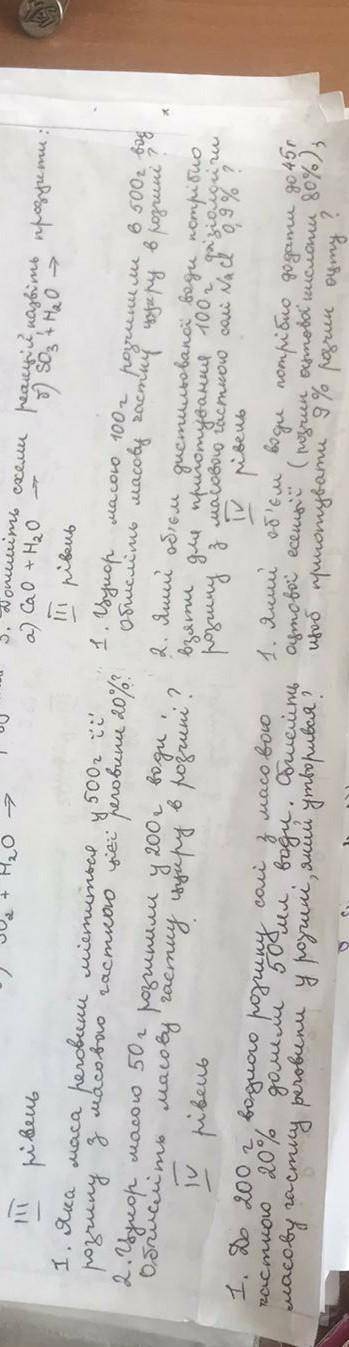 SO2 + H2O →
III рівень
1. Яка маса речовини міститься у 500г її
розчину з масовою часткою цієї речовини 20%?
2. Цукор масою 50г розчинили у 200г води.
Обчисліть масову частку цукру в розчині?
IV рівень
1. До 200 г водного розчину солі з масовою
часткою 20% долили 50 мл води. Обчисліть
масову частку речовини у розчині, який утворився?
3. Допишіть схеми реакцій, назвіть продукти:
а) CaO + H2O → б) SO3 + H2O →
III рівень
1. Цукор масою 100г розчинили в 500г води
Обчисліть масову частку цукру в розчині?
2. Який об'єм дистильованої води потрібно
взяти для приготування 100г фізіологічн
розчину з масовою часткою солі NaCl 0,9%?
IV рівень
1. Який об'єм води потрібно додати до 45г
оцтової есенції (розчин оцтової кислоти 80%),
щоб приготувати 9% розчин оцту?